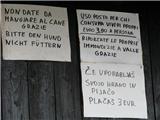 NON DATE DA
MANGIARE AL CANE
GRAZIE
BITTE DEN HUND
NICHT FÜTTERN
USO POSTO PER CHI
CONSUMA VIVERI PROPRI
EURO 3,00 A PERSONA
RIPORTATE LE PROPRIE
IMMONDIZIE A VALLE
GRAZIE
ČE UPORABLJAŠ
SVOJO HRANO IN
PIJAČO
PLAČAŠ 3 EUR.